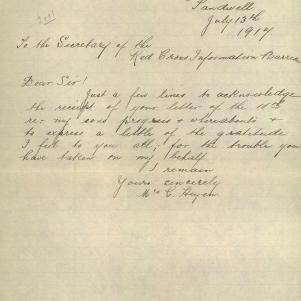 Sandwell
July 13th
1917
To the Secretary of the
Red Cross Information Barrea
Dear Sir!
Just a few lines to acknowledge
the receipt of your letter of the 11th
re- my sons progress & whereabouts &
to express a little of the gratitude
I fell to you all; for the trouble you
have taken on my behalf.
I remain
Yours sincerely
Mrs C